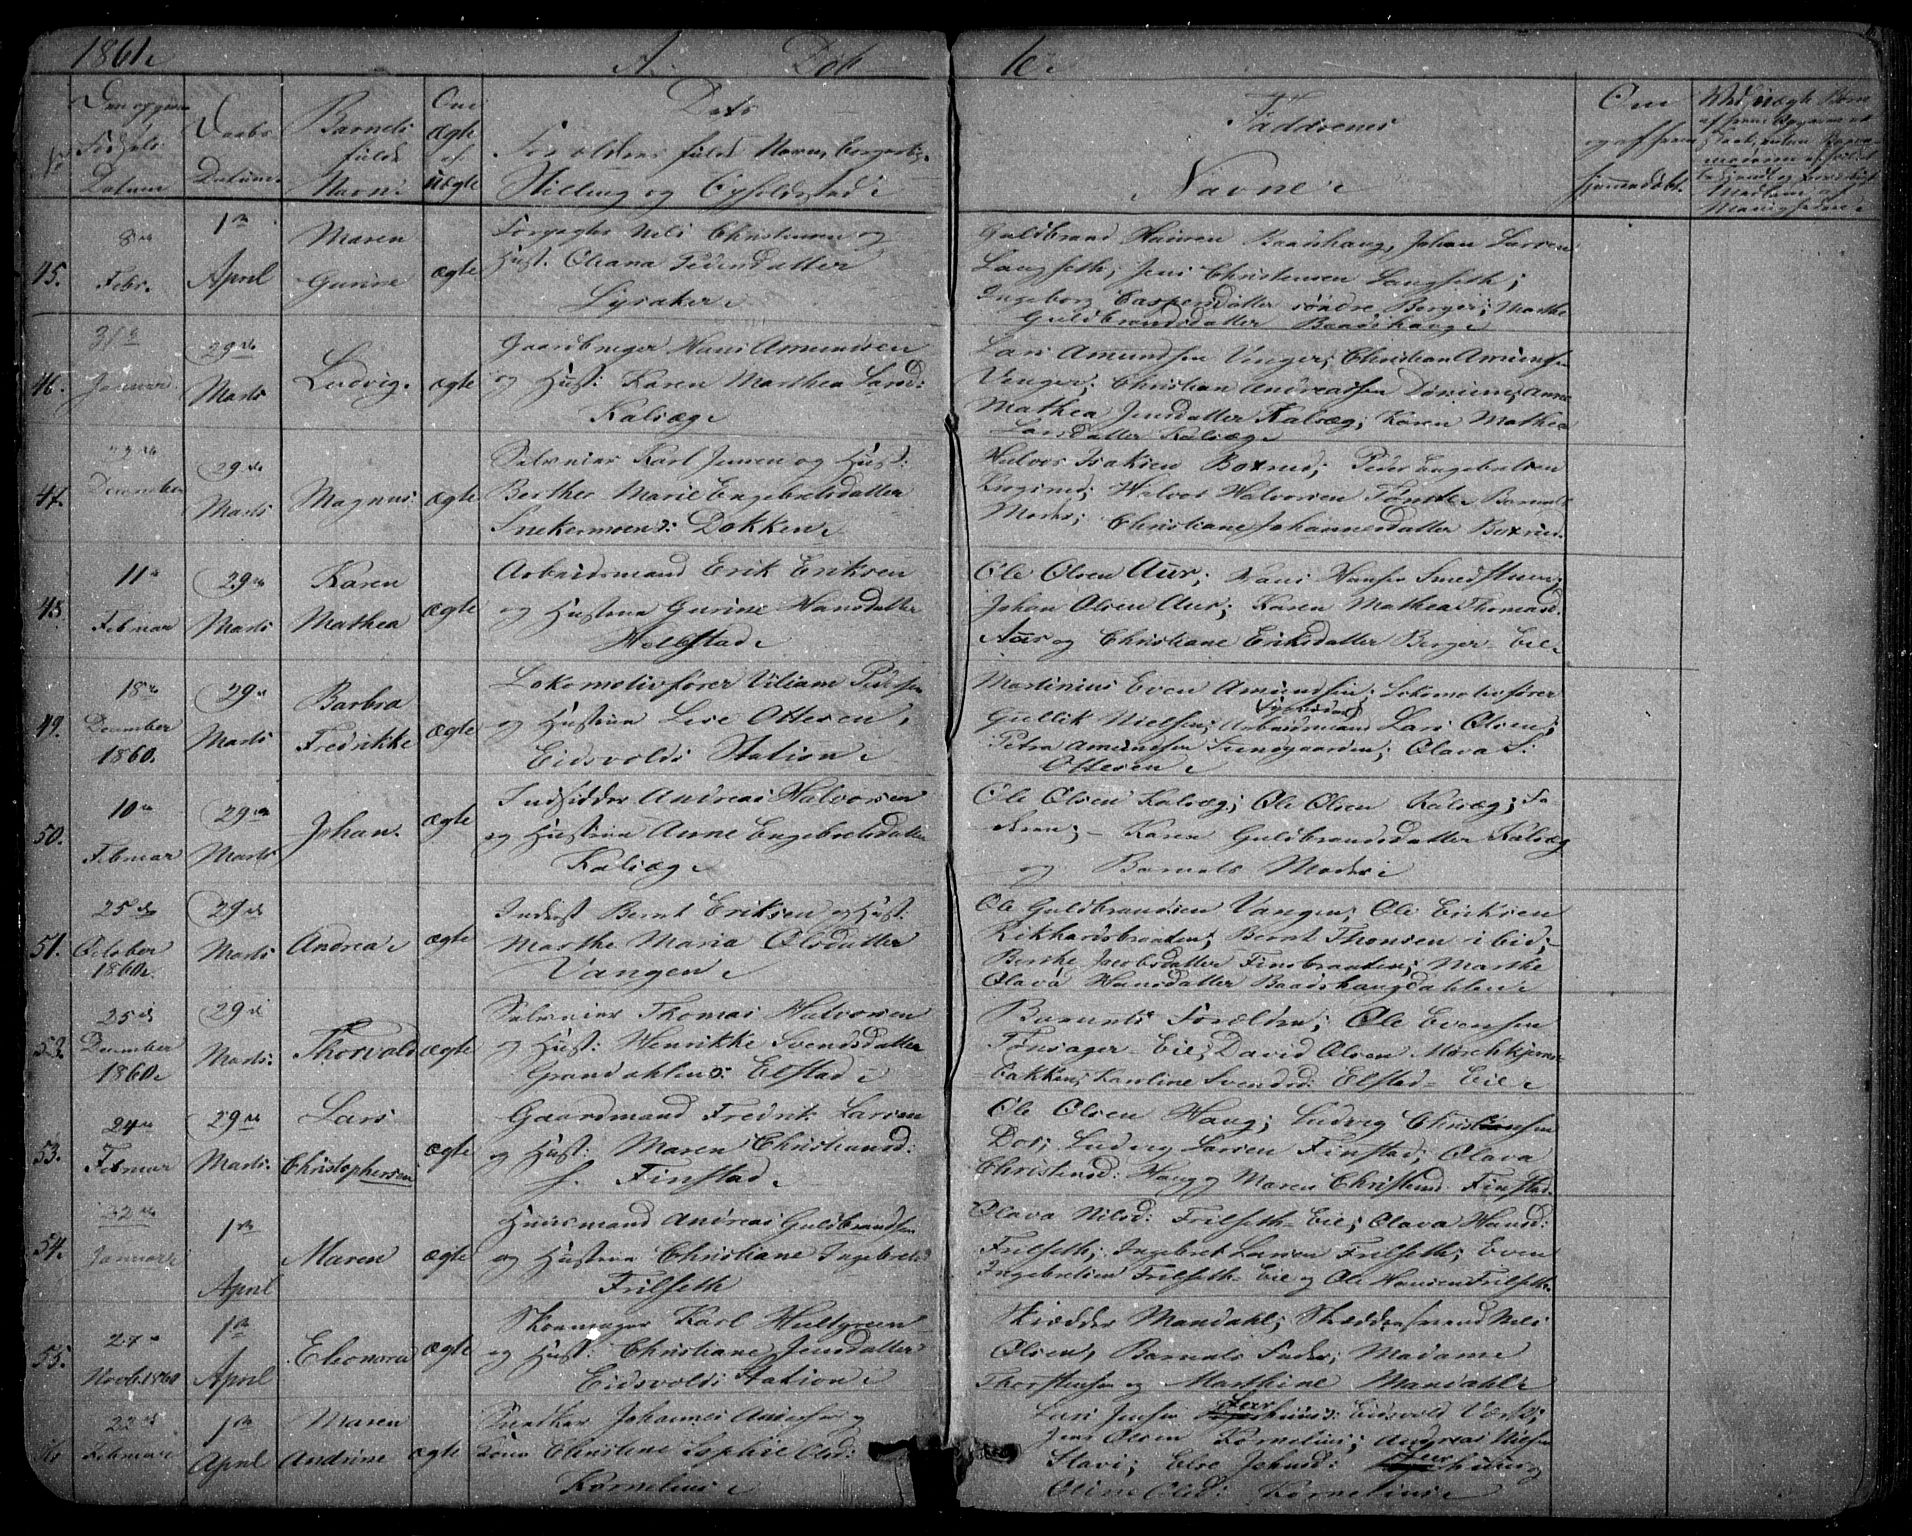 1861.
A.
Døb
6.
No
Den opgivne
Fødsels
Datum
Daabs
Datum.
Barnets
fulde
Navn.
Om
ægte
el.
uægte
Dets
Forældres fulde Navn, borgerlige
Stilling og Opholdsted.
Faddernes
Navne.
Om
og af hvem
hjemmedøbt.
45.
8de
Febr.
1ste
April
Maren
Gurine
ægte
Nils Christensen og
Hust. Oliana Pedersdatter
Lysaker.
Guldbrand Hansen Baadshaug, Johan Larsen
Langseth; Jens Christensen Langseth;
Ingeborg Caspersdatter søndre Berger; Marthe
Guldbrandsdatter Baadshaug.
46.
31te
Januar
29de
Marts
Ludvig.
ægte
Gaardbruger Hans Amundsen
og Hust: Karen Marthea Lars d:
Kalsæg.
Lars Amundsen Venger; Christian Amundsen
Venger; Christian Andreassen; Anne
Mathea Jensdatter Kalsæg; Karen Mathea
Larsdatter Kalsæg.
47.
December
29de
Marts
Magnus.
ægte
Selveier Karl Jensen og Hust:
Berthe Marie Engebretsdatter
Snekermoen v: Dokken.
Halvor Isaksen Boxrud; Peder Engebretsen
Halvor Halvorsen Tønste. Barnets
Moder; Christiane Johannesdatter Boxrud.
48.
11te
Februar
29de
Marts
Karen
Mathea
ægte
Arbeidsmand Erik Eriksen
og Hustrue Gurine Hansdatter
Habbestad.
Ole Olsen Aur; Hans Hansen Smedstuen;
Johan Olsen Aur; Karen Mathea Thomasd.
Aur og Christiane Eriksdatter Berger-Eie.
49.
18de
December
1860.
29de
Marts
Barbra
Fredrikke
ægte
Lokomotivfører Viliam Pedersen
og Hustrue Lise Ottesen,
Eidsvolds Station.
Martinius Even Amundsen; Lokomotivfører
Gullik Nielsen; Arbeidsmand Lars Olsen;
Petra Amundsen Sundgaarden; Olava S.
Ottesen.
50.
10de
Februar
29de
Marts
Johan.
ægte
Indsidder Andreas Halvorsen
og Hustrue Anne Engebretsdatter
Kalsæg.
Ole Olsen Kalsæg; Ole Olsen Kalsæg; Fa-
deren; - Karen Guldbrandsdatter Kalsæg
og Barnets Moder.
51.
25de
October
1860.
29de
Marts
Andrea.
ægte
Inderst Bernt Eriksen og Hust:
Marthe Maria Olsdatter
Vangen.
Ole Guldbrandsen Vangen; Ole Eriksen
Rikhardsbraaten; Bernt Thomsen ibid;
Berthe Jacobsdatter Finsbraaten; Marthe
Olava Hansdatter Baadshaugdahlen.
52.
25de
December
1860.
29de
Marts.
Thorvald
ægte
Selveier Thomas Halvorsen
og Hust: Henrikke Svendsdatter
Grandahlen v: Elstad.
Barnets Forældre; Ole Evensen
Tønsager-Eie; David Olsen Mørchkjern-
bakken; Karline Svendsd: Elstad-Eie.
53.
24de
Februar
29de
Marts.
Lars
Christophersen
ægte
Gaardmand Fredrik Larsen
og Hust: Maren Christiansd:
Finstad.
Ole Olsen Haug; Ludvig Christiansen
Dos; Ludvig Larsen Finstad; Olava
Christiansd: Haug og Maren Christensd: Finstad.
54.
22de
Januar.
1ste
April
Maren
ægte
Huusmand Andreas Guldbrandsen
og Hustrue Christiane Ingebretsd
Frilseth
Olava Nilsd: Frilseth-Eie; Olava Hansd:
Frilseth; Ingebret Larsen Frilseth; Even
Ingebretsen Frilseth-Eie og Ole Hansen Frilseth.
55.
27de
Novb. 1860
1ste
April
Eleonora
ægte
Skomager Karl Hultgreen
og Hust: Christiane Jensdatter
Eidsvolds Station.
Skrædder Mandahl; Skræddersvend Nils
Olsen, Barnets Fader; Madame
Thorstensen og Marthine Mandahl.
56
22de
Februar.
1ste
April
Maren
Andrine
ægte
Johannes Andersen og
Elenstene Sophie Olsd:
Kornelius.
Lars Jensen Eidsvold Værk;
Jens Olsen Kornelius; Andreas Nilsen
Stavi; Else Johnsd:
Oline Olsd: Kornelius.